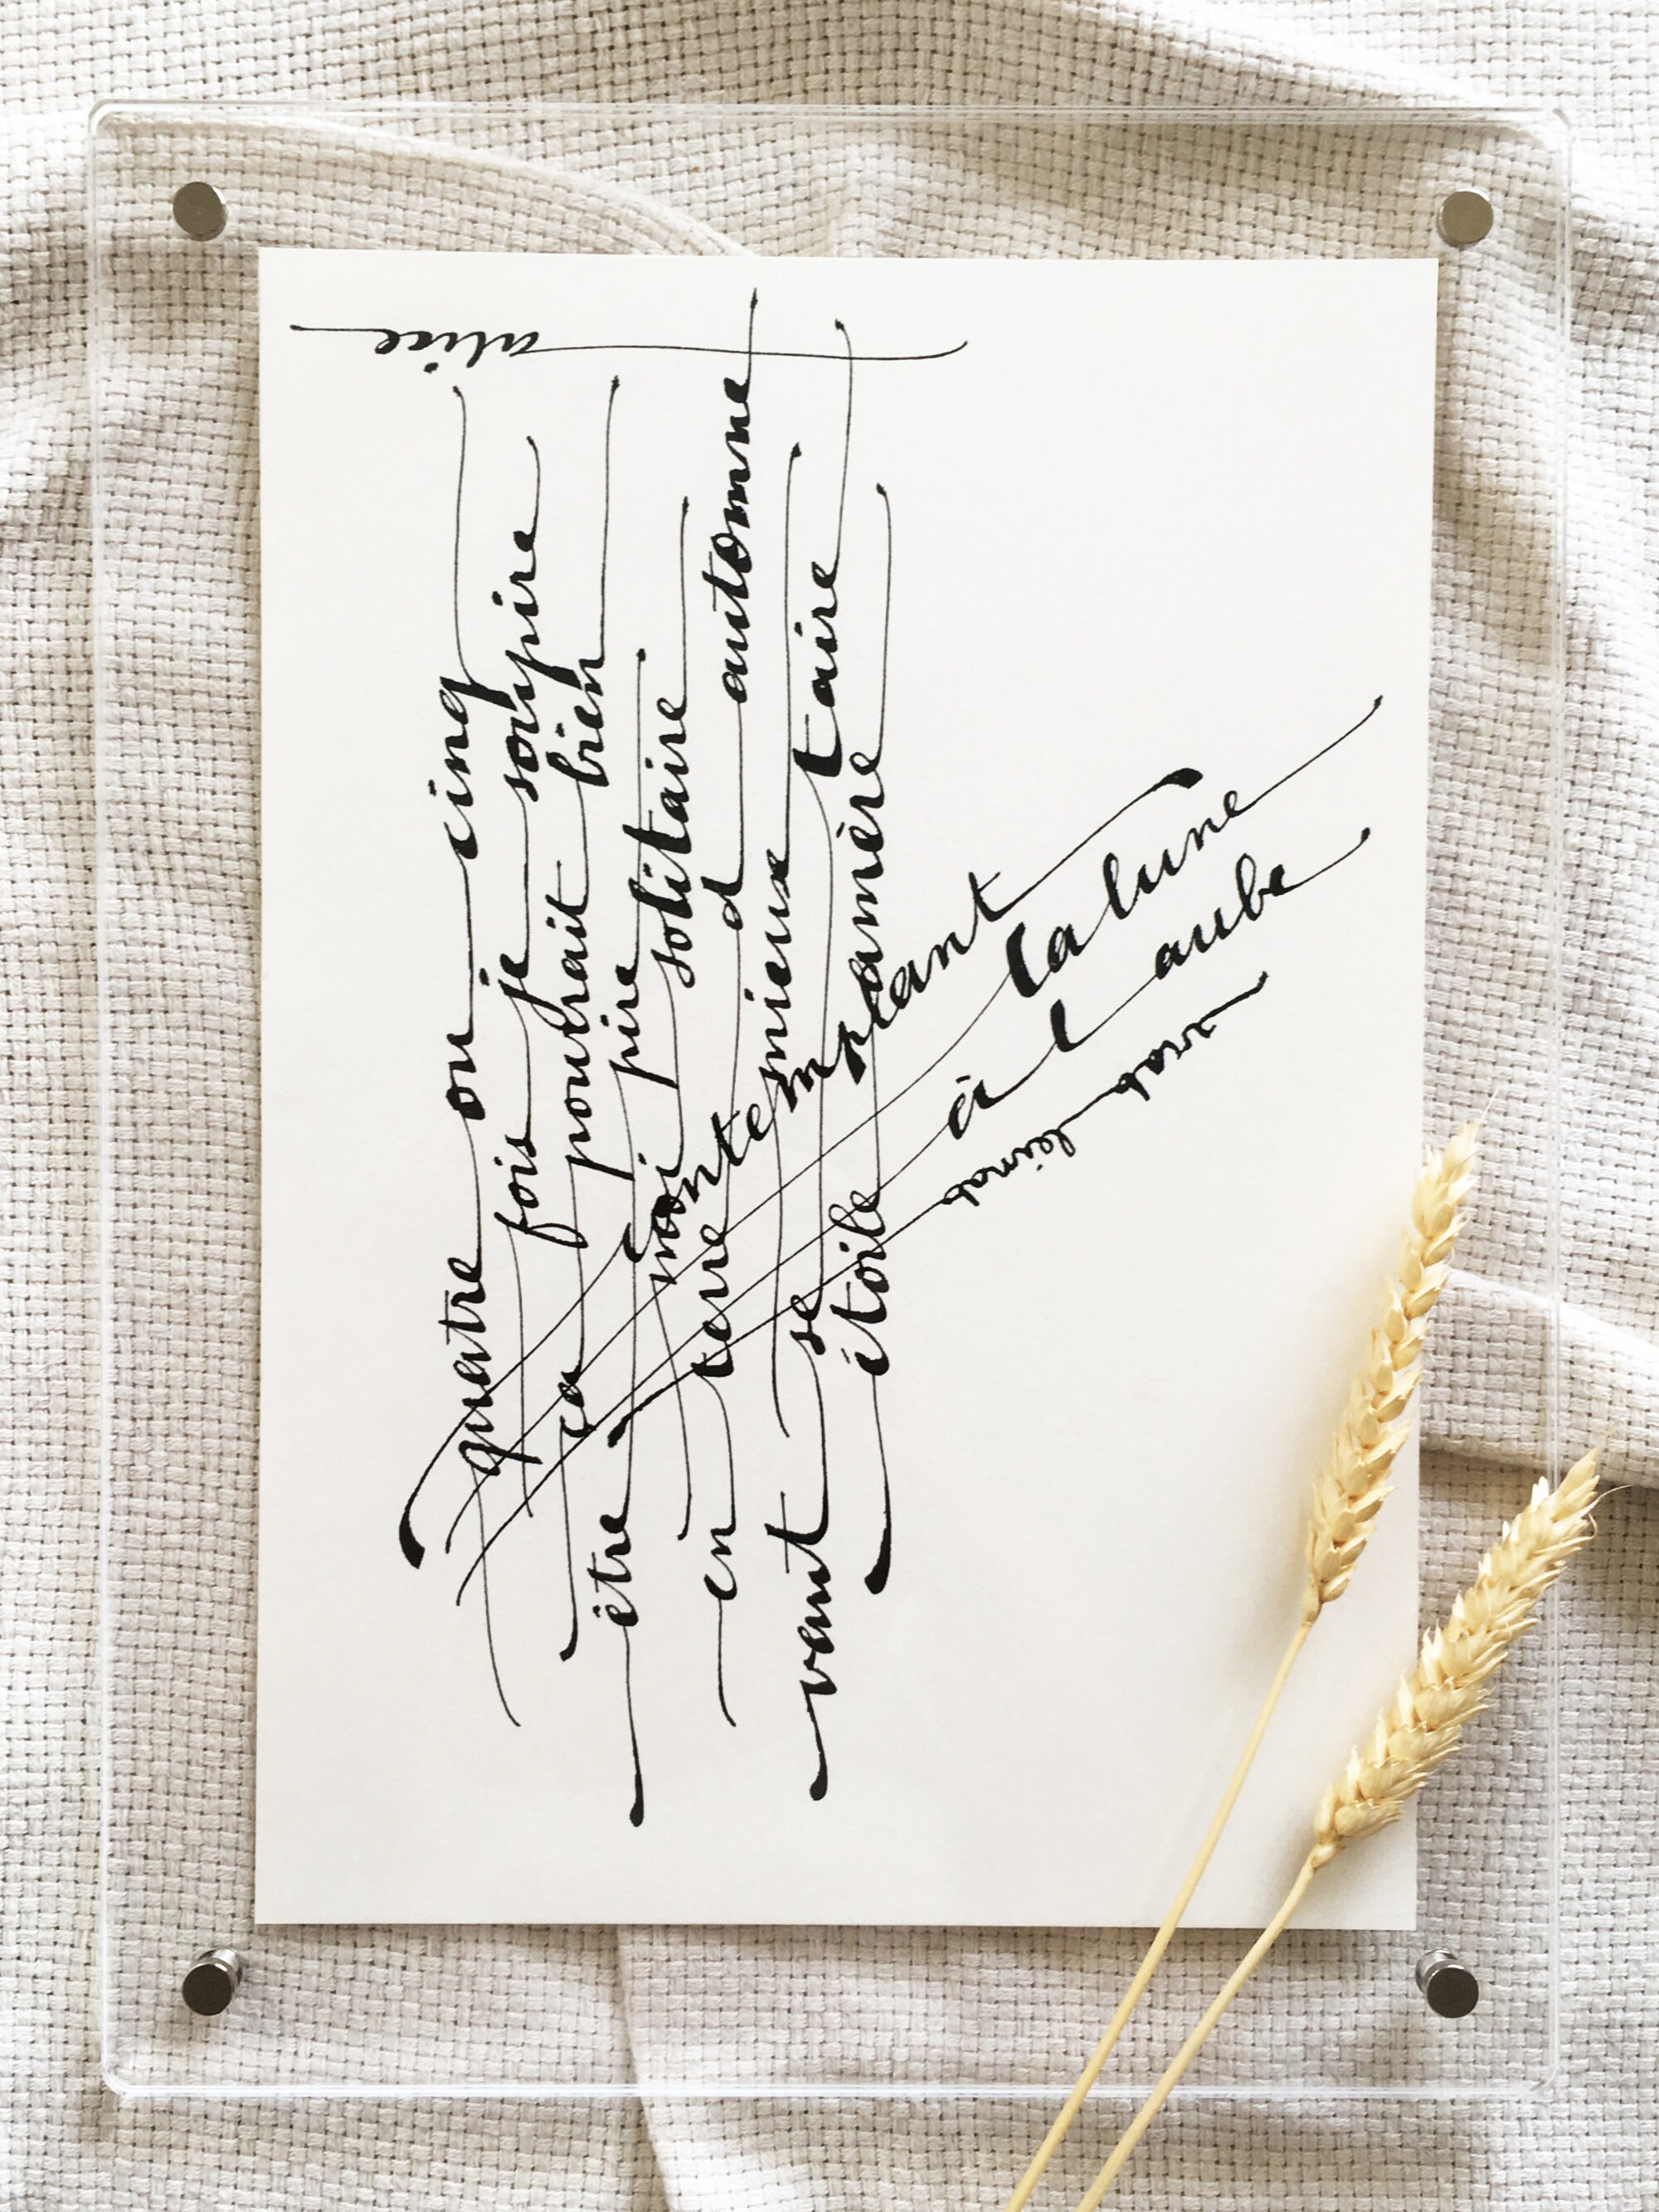 quatre ou cinq
fois je soupire
ça pourrait bien
être pire
moi solitaire
en terre d automne
mieux
vaut se taire
étoile amère
contemplant
la lune
à l aube
alice